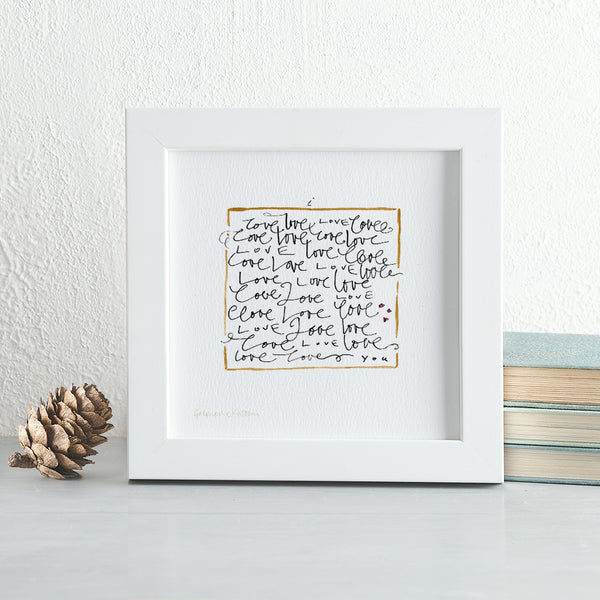 i
love love LOVE love
love love love love
LOVE love love
love love LOVE love
Love Love love
love love LOVE
love love love
LOVE love love
love LOVE love
love love you